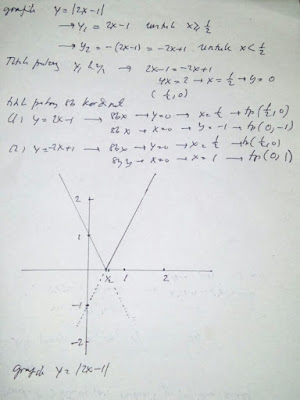 grafik y = |2x-1|
→ y₁ = 2x-1 untuk x ≥ ½
→ y₂ = -(2x-1) = -2x+1 untuk x < ½
Titik potong y₁ & y₂ → 2x-1 = -2x+1
4x = 2 → x = ½ → y = 0
(½, 0)
titik potong sb koordinat
(1) y = 2x-1 → sb x → y=0 → x = ½ → tp (½, 0)
x=0 → y = -1 → tp (0, -1)
(2) y = -2x+1 → sb x → y=0 → x = ½ → tp (½, 0)
sb y → x=0 → x = 1 → tp (0, 1)
2
1
½ 1 2
-1
-2
grafik y = |2x-1|